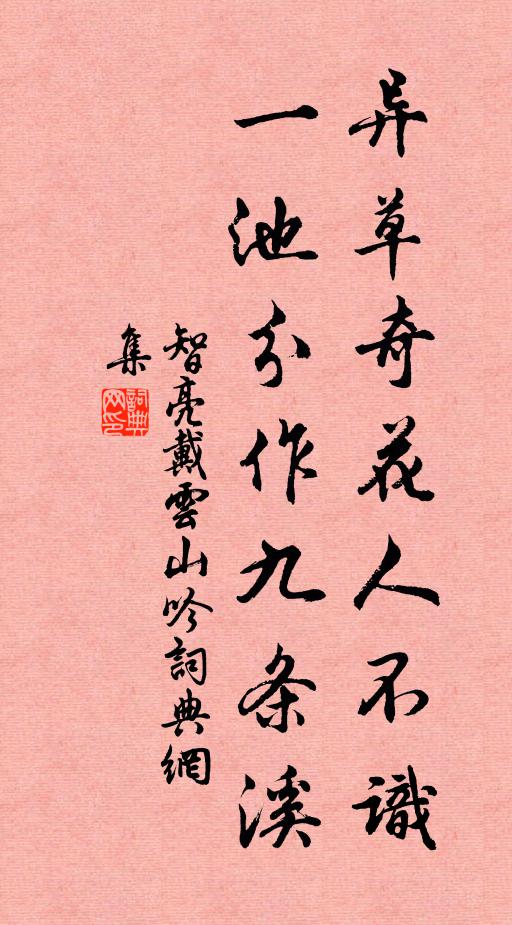 异草奇花人不識
一池分作九条溪
智亮戴雲山吟詞典網
集
詞典网印